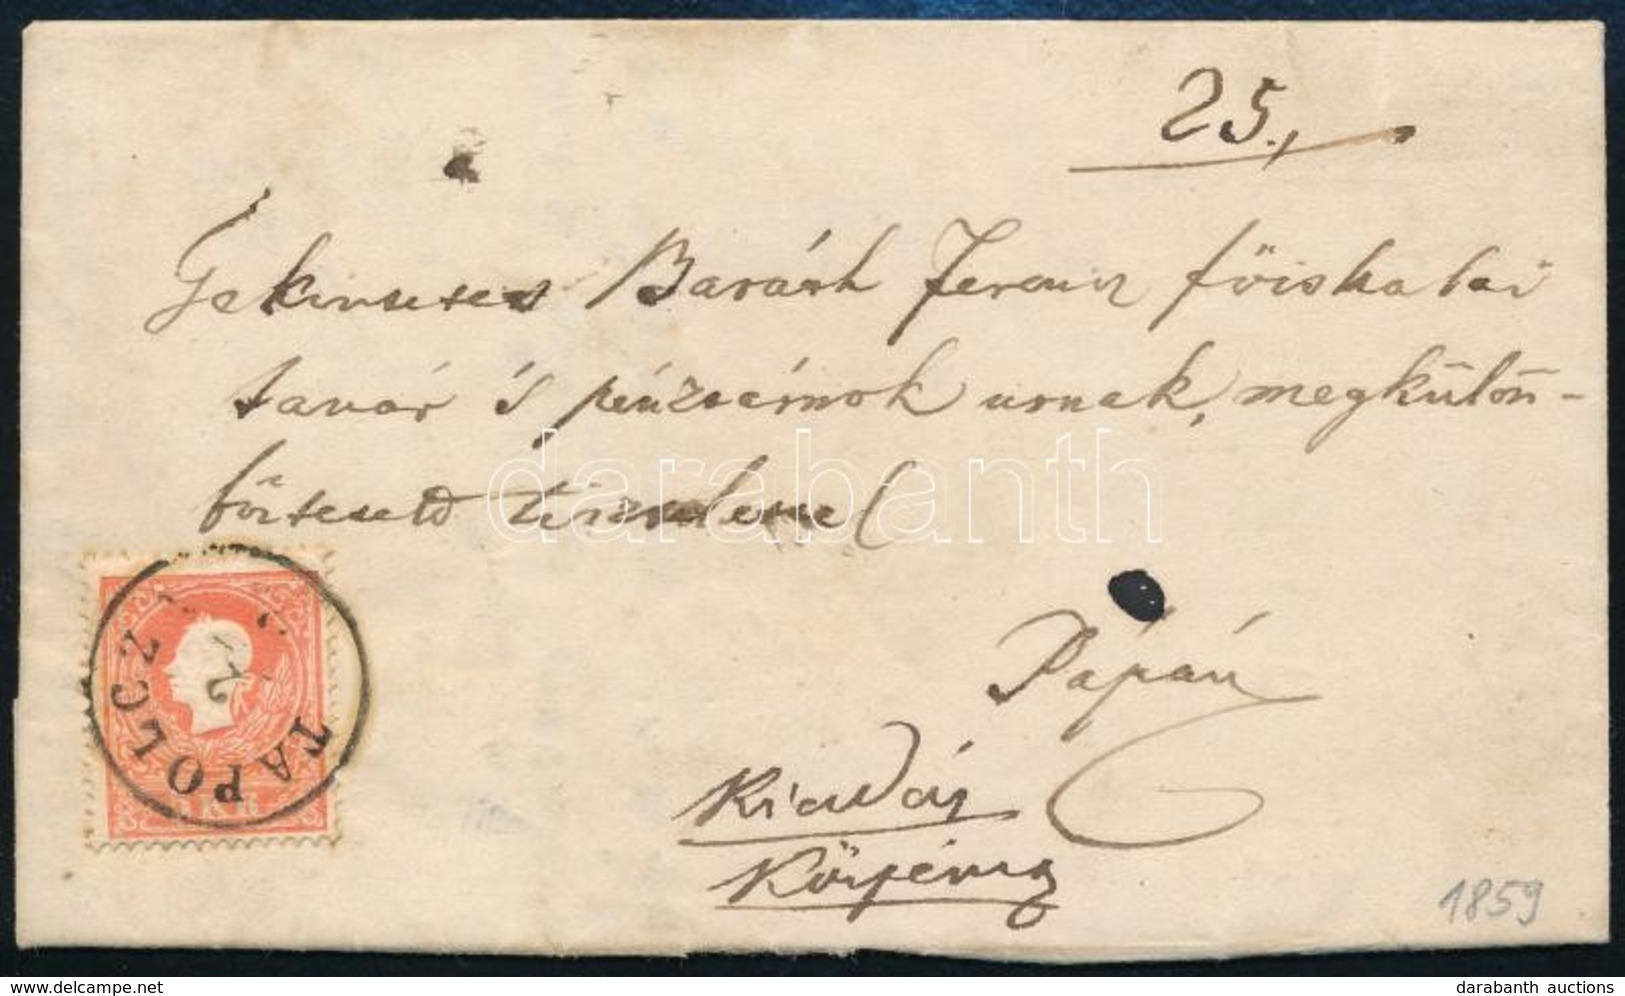 25.,
Tekintetes Baráth Ferencz főiskolai
tanár és pénztárnok urnak, megkülön-
böztetett tisztelettel
Pápán
Kiadás
1859
TAPOLCZ
darabanth
darabanth auctions
delcampe.net